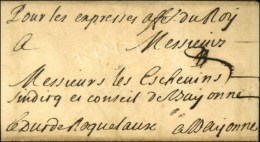 Pour les expresses aff.es du Roy
A Messieurs
Messieurs les Eschevins
Sindicq et conseil de Bayonne
A Bayonne